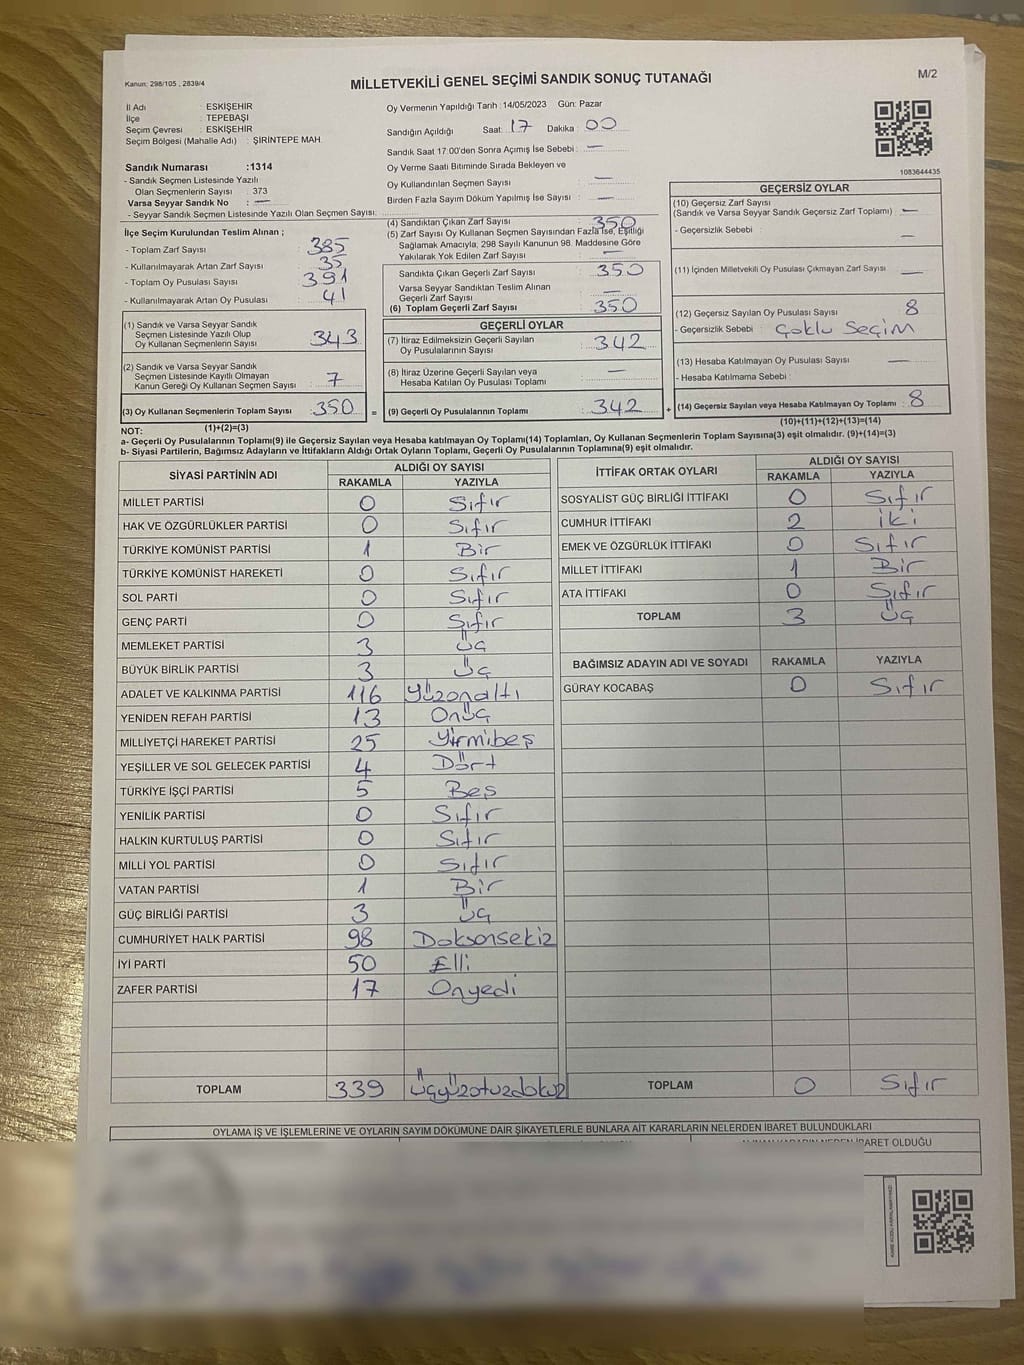 Kanun: 298/105 , 2839/4
MİLLETVEKİLİ GENEL SEÇİMİ SANDIK SONUÇ TUTANAĞI
M/2
İl Adı : ESKİŞEHİR
İlçe : TEPEBAŞI
Seçim Çevresi : ESKİŞEHİR
Seçim Bölgesi (Mahalle Adı) : ŞIRINTEPE MAH.
Sandık Numarası :1314
- Sandık Seçmen Listesinde Yazılı
Olan Seçmenlerin Sayısı : 373
Varsa Seyyar Sandık No : —
- Seyyar Sandık Seçmen Listesinde Yazılı Olan Seçmen Sayısı:
Oy Vermenin Yapıldığı Tarih : 14/05/2023 Gün: Pazar
Sandığın Açıldığı Saat: 17 Dakika : 00
Sandık Saat 17:00'den Sonra Açımış İse Sebebi : —
Oy Verme Saati Bitiminde Sırada Bekleyen ve
Oy Kullandırılan Seçmen Sayısı —
Birden Fazla Sayım Döküm Yapılmış İse Sayısı : —
1083644435
İlçe Seçim Kurulundan Teslim Alınan ;
- Toplam Zarf Sayısı : 385
- Kullanılmayarak Artan Zarf Sayısı : 35
- Toplam Oy Pusulası Sayısı : 391
- Kullanılmayarak Artan Oy Pusulası : 41
(1) Sandık ve Varsa Seyyar Sandık
Seçmen Listesinde Yazılı Olup
Oy Kullanan Seçmenlerin Sayısı : 343
(2) Sandık ve Varsa Seyyar Sandık
Seçmen Listesinde Kayıtlı Olmayan
Kanun Gereği Oy Kullanan Seçmen Sayısı : 7
(3) Oy Kullanan Seçmenlerin Toplam Sayısı : 350 =
(1)+(2)=(3)
(4) Sandıktan Çıkan Zarf Sayısı : 350
(5) Zarf Sayısı Oy Kullanan Seçmen Sayısından Fazla İse, Eşitliği
Sağlamak Amacıyla, 298 Sayılı Kanunun 98. Maddesine Göre
Yakılarak Yok Edilen Zarf Sayısı : —
Sandıkta Çıkan Geçerli Zarf Sayısı : 350
Varsa Seyyar Sandıktan Teslim Alınan
Geçerli Zarf Sayısı : —
(6) Toplam Geçerli Zarf Sayısı : 350
GEÇERLİ OYLAR
(7) İtiraz Edilmeksizin Geçerli Sayılan
Oy Pusulalarının Sayısı : 342
(8) İtiraz Üzerine Geçerli Sayılan veya
Hesaba Katılan Oy Pusulası Toplamı : —
(9) Geçerli Oy Pusulalarının Toplamı : 342 +
GEÇERSİZ OYLAR
(10) Geçersiz Zarf Sayısı
(Sandık ve Varsa Seyyar Sandık Geçersiz Zarf Toplamı) : —
- Geçersizlik Sebebi : —
(11) İçinden Milletvekili Oy Pusulası Çıkmayan Zarf Sayısı : —
(12) Geçersiz Sayılan Oy Pusulası Sayısı : 8
- Geçersizlik Sebebi : Çoklu Seçim
(13) Hesaba Katılmayan Oy Pusulası Sayısı : —
- Hesaba Katılmama Sebebi :
(14) Geçersiz Sayılan veya Hesaba Katılmayan Oy Toplamı : 8
(10)+(11)+(12)+(13)=(14)
NOT:
a- Geçerli Oy Pusulalarının Toplamı(9) ile Geçersiz Sayılan veya Hesaba katılmayan Oy Toplamı(14) Toplamları, Oy Kullanan Seçmenlerin Toplam Sayısına(3) eşit olmalıdır. (9)+(14)=(3)
b- Siyasi Partilerin, Bağımsız Adayların ve İttifakların Aldığı Ortak Oyların Toplamı, Geçerli Oy Pusulalarının Toplamına(9) eşit olmalıdır.
SİYASİ PARTİNİN ADI ALDIĞI OY SAYISI
RAKAMLA YAZIYLA
MİLLET PARTİSİ 0 Sıfır
HAK VE ÖZGÜRLÜKLER PARTİSİ 0 Sıfır
TÜRKİYE KOMÜNİST PARTİSİ 1 Bir
TÜRKİYE KOMÜNİST HAREKETİ 0 Sıfır
SOL PARTİ 0 Sıfır
GENÇ PARTİ 0 Sıfır
MEMLEKET PARTİSİ 3 Üç
BÜYÜK BİRLİK PARTİSİ 3 Üç
ADALET VE KALKINMA PARTİSİ 116 Yüzonaltı
YENİDEN REFAH PARTİSİ 13 Onüç
MİLLİYETÇİ HAREKET PARTİSİ 25 Yirmibeş
YEŞİLLER VE SOL GELECEK PARTİSİ 4 Dört
TÜRKİYE İŞÇİ PARTİSİ 5 Beş
YENİLİK PARTİSİ 0 Sıfır
HALKIN KURTULUŞ PARTİSİ 0 Sıfır
MİLLİ YOL PARTİSİ 0 Sıfır
VATAN PARTİSİ 1 Bir
GÜÇ BİRLİĞİ PARTİSİ 3 Üç
CUMHURİYET HALK PARTİSİ 98 Doksonsekiz
İYİ PARTİ 50 Elli
ZAFER PARTİSİ 17 Onyedi
TOPLAM 339 Üçyüzotuzdokuz
İTTİFAK ORTAK OYLARI ALDIĞI OY SAYISI
RAKAMLA YAZIYLA
SOSYALİST GÜÇ BİRLİĞİ İTTİFAKI 0 Sıfır
CUMHUR İTTİFAKI 2 İki
EMEK VE ÖZGÜRLÜK İTTİFAKI 0 Sıfır
MİLLET İTTİFAKI 1 Bir
ATA İTTİFAKI 0 Sıfır
TOPLAM 3 Üç
BAĞIMSIZ ADAYIN ADI VE SOYADI RAKAMLA YAZIYLA
GÜRAY KOCABAŞ 0 Sıfır
TOPLAM 0 Sıfır
OYLAMA İŞ VE İŞLEMLERİNE VE OYLARIN SAYIM DÖKÜMÜNE DAİR ŞİKAYETLERLE BUNLARA AİT KARARLARIN NELERDEN İBARET BULUNDUKLARI
İBARET OLDUĞU